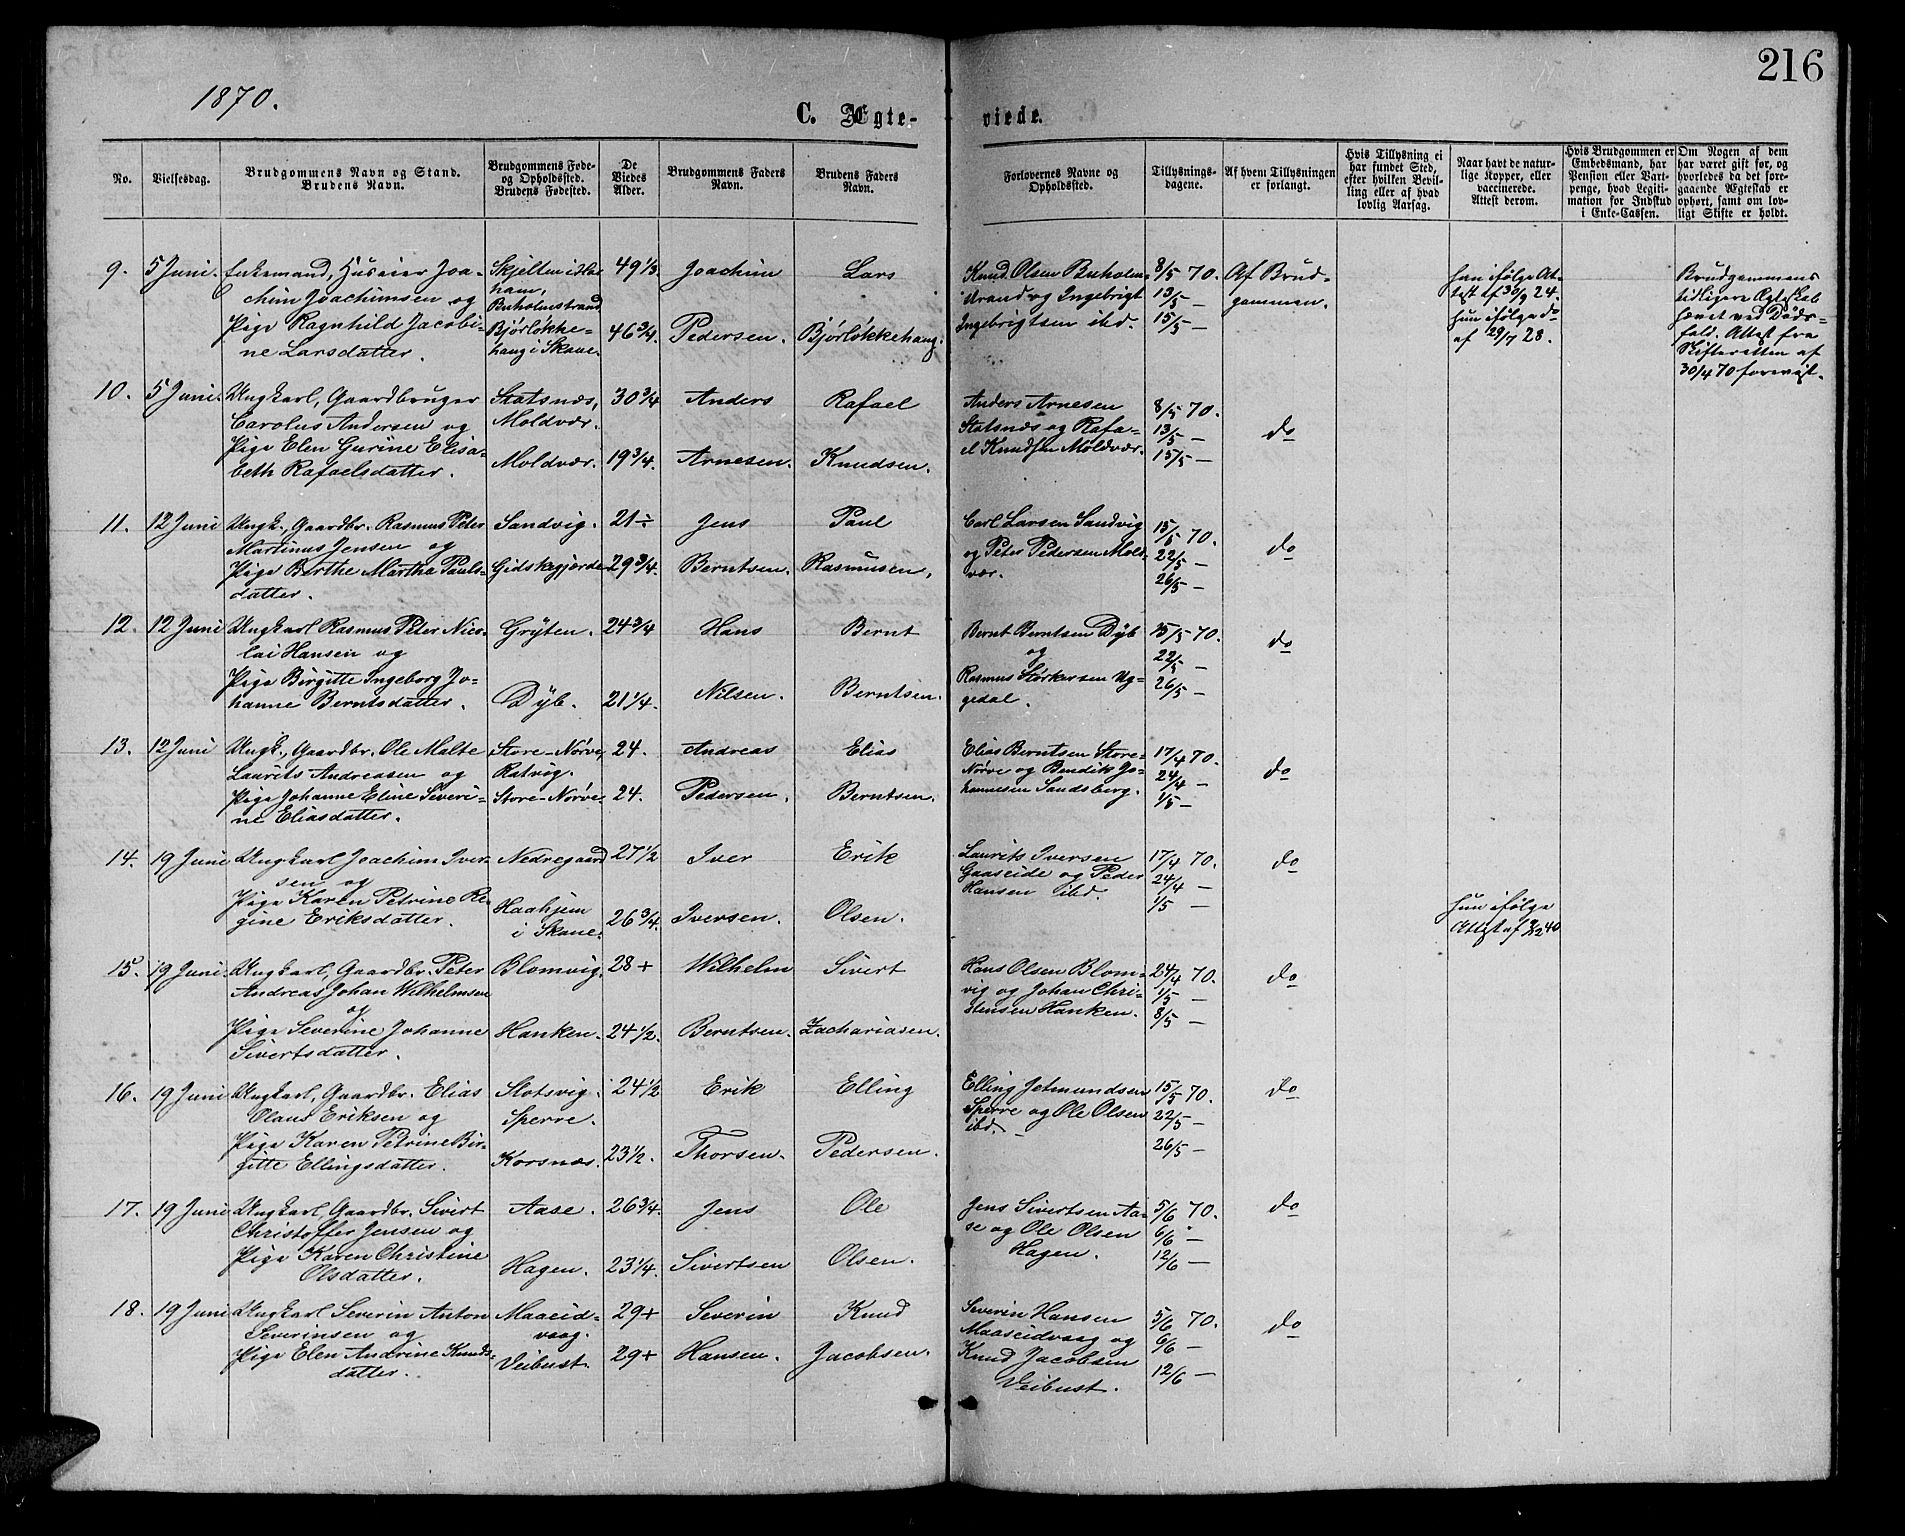 216
1870.
C. Ægte-
viede.
No.
Vielsesdag.
Brudgommens Navn og Stand.
Brudens Navn.
Brudgommens Føde-
og Opholdssted.
Brudens Fødested.
De
Viedes
Alder.
Brudgommens Faders
Navn.
Brudens Faders
Navn.
Forlovernes Navne og
Opholdssted.
Tillysnings-
dagene.
Af hvem Tillysningen
er forlangt.
Hvis Tillysning ei
har fundet Sted,
efter hvilken Bevil-
ling eller af hvad
lovlig Aarsag.
Naar havt de natur-
lige Kopper, eller
vaccinerede.
Attest derom.
Hvis Brudgommen er
Embedsmand, har
Pension eller Vart-
penge, hvad Legiti-
mation for Indskud
i Enke-Cassen.
Om Nogen af dem
har været gift før, og
hvorledes da det fore-
gaaende Ægteskab er
ophørt, samt om lov-
ligt Skifte er holdt.
9.
5 Juni.
Enkemand, Huseier Joa-
chim Joachimsen og
Pige Ragnhild Jacobi-
ne Larsdatter.
Skjelten i
ham,
Buholmstrand
Bjørløkke-
haug i Skaue.
49 1/3
46 3/4.
Joachim
Pedersen.
Lars
Bjørløkkehaug.
Knud Olsen Buholm-
strand og Ingebrigt
Ingebrigtsen ibd.
8/5 70.
13/5 —
15/5 —
Af Brud-
gommen.
han ifølge At-
test af 30/9 24.
hun ifølge do
af 29/7 28.
Brudgommens
tidligere Ægteskab
hævet ved Døds-
fald. Attest fra
Skifteretten af
30/4 70 forevist.
10.
5 Juni.
Ungkarl, Gaardbruger
Carolus Andersen og
Pige Elen Gurine Elisa-
beth Rafaelsdatter.
Statsnæs,
Moldvær.
Moldvær.
30 3/4
19 3/4.
Anders
Arnesen.
Rafael
Knudsen.
Anders Arnesen
Statsnæs og Rafa-
el Knudsen Moldvær.
8/5 70.
13/5 —
15/5 —
do
11.
12 Juni
Ungk., Gaardbr. Rasmus Peter
Martinus Jensen og
Pige Berthe Martha Pauls-
datter.
Sandvig.
Gidskegjerde
21 ÷
29 3/4.
Jens
Berntsen.
Paul
Rasmusen.
Carl Larsen Sandvig
og Peter Pedersen Mold-
vær.
15/5 70.
22/5 —
26/5 —
do
12.
12 Juni
Ungkarl Rasmus Peter Nico-
lai Hansen og
Pige Birgitte Ingeborg Jo-
hanne Berntsdatter.
Grÿten.
Dÿb.
24 3/4
21 1/4.
Hans
Nilsen.
Bernt
Berntsen.
Bernt Berntsen Dÿb
og
Rasmus Størkersen Ug-
gedal.
15/5 70.
22/5 —
26/5 —
do
13.
12 Juni
Ungk., Gaardbr. Ole Malte
Laurits Andreasen og
Pige Johanne Eline Severi-
ne Eliasdatter.
Store-Nørve,
Ratvig.
Store-Nørve.
24.
24.
Andreas
Pedersen.
Elias
Berntsen.
Elias Berntsen Store-
Nørve og Bendik Jo-
hannesen Sandsberg.
17/4 70.
24/4 —
1/5 —
do
14.
19 Juni
Ungkarl Joachim Iver-
sen og
Pige Karen Petrine Re-
gine Eriksdatter.
Nedregaard
Haahjem
i Skaue.
27 1/2
26 3/4.
Iver
Iversen.
Erik
Olsen.
Laurits Iversen
Gaaseide og Peder
Hansen ibd.
17/4 70.
24/4 —
1/5 —
do
hun ifølge
Attest af 40
15.
19 Juni.
Ungkarl, Gaardbr. Peter
Andreas Johan Wilhelmsen
og
Pige Severine Johanne
Sivertsdatter.
Blomvig.
Hanken.
28 +
24 1/2.
Wilhelm
Berntsen.
Sivert
Zachariasen.
Hans Olsen Blom-
vig og Johan Chri-
stensen Hanken.
24/4 70.
1/5 —
8/5 —
do
16.
19 Juni
Ungkarl, Gaardbr. Elias
Olaus Eriksen og
Pige Karen Petrine Bir-
gitte Ellingsdatter.
Slotsvig.
Sperre.
Korsnæs.
24 1/2
23 1/2.
Erik
Thorsen.
Elling
Pedersen.
Elling Jetmundsen
Sperre og Ole Olsen
ibd.
15/5 70.
22/5 —
26/5 —
do
17.
19 Juni
Ungkarl, Gaardbr. Sivert
Christoffer Jensen og
Pige Karen Christine
Olsdatter.
Aase.
Hagen.
26 3/4.
23 1/4.
Jens
Sivertsen
Ole
Olsen.
Jens Sivertsen Aa-
se og Ole Olsen
Hagen.
5/6 70.
6/6 "
12/6 —
do
18.
19 Juni
Ungkarl Severin Anton
Severinsen og
Pige Elen Andrine Knuds-
datter.
Maaseid-
vaag.
Veibust.
29 +
29 +
Severin
Hansen.
Knud
Jacobsen.
Severin Hansen
Maaseidvaag og
Knud Jacobsen
Veibust.
5/6 70.
6/6 —
12/6 —
do